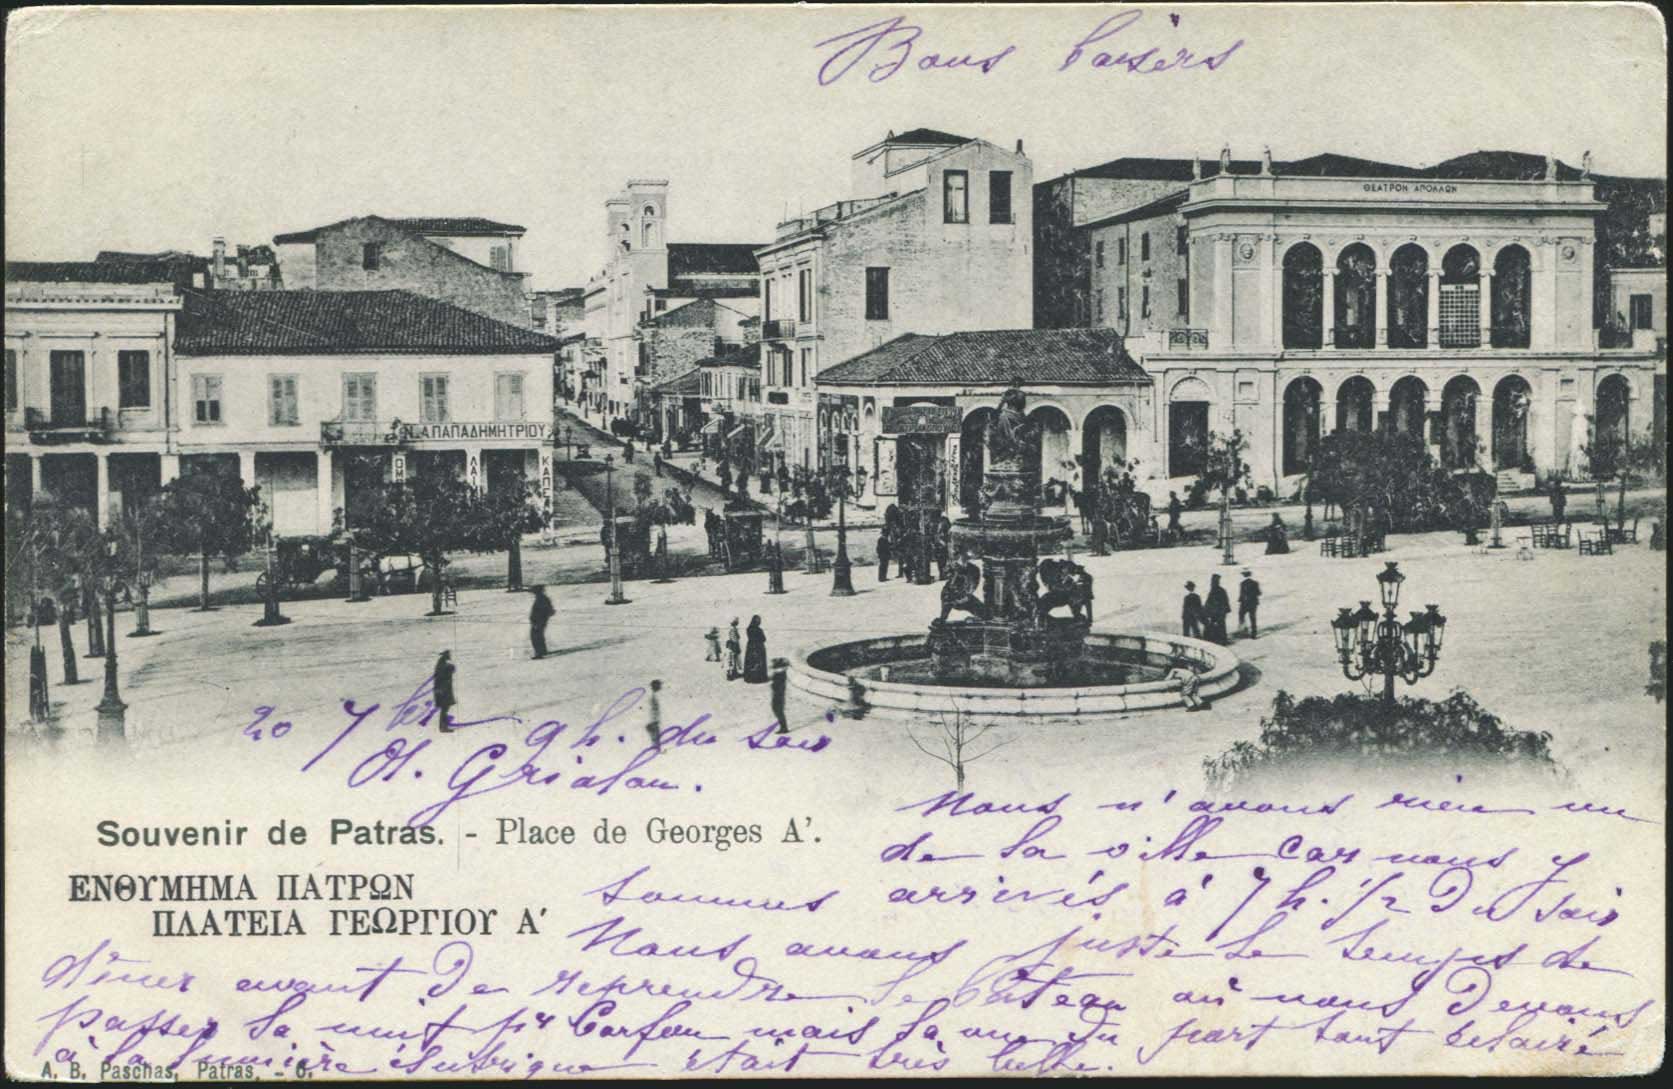 Bons baisers
ΘΕΑΤΡΟΝ ΑΠΟΛΛΩΝ
Ν. ΑΠΑΠΑΔΗΜΗΤΡΙΟΥ
20 7bre 9 h. du soir
Souvenir de Patras. - Place de Georges A'.
ΕΝΘΥΜΗΜΑ ΠΑΤΡΩΝ
ΠΛΑΤΕΙΑ ΓΕΩΡΓΙΟΥ Α'
Nous n'avons rien vu
de la ville car nous y
sommes arrivés à 7 h. 1/2 du soir
Nous avons juste le temps de
dîner avant de reprendre le bateau où nous devons
passer la nuit pr Corfou mais la vue du port tout éclairé
à la lumière électrique était très belle.
A. B. Paschas, Patras. - 6.